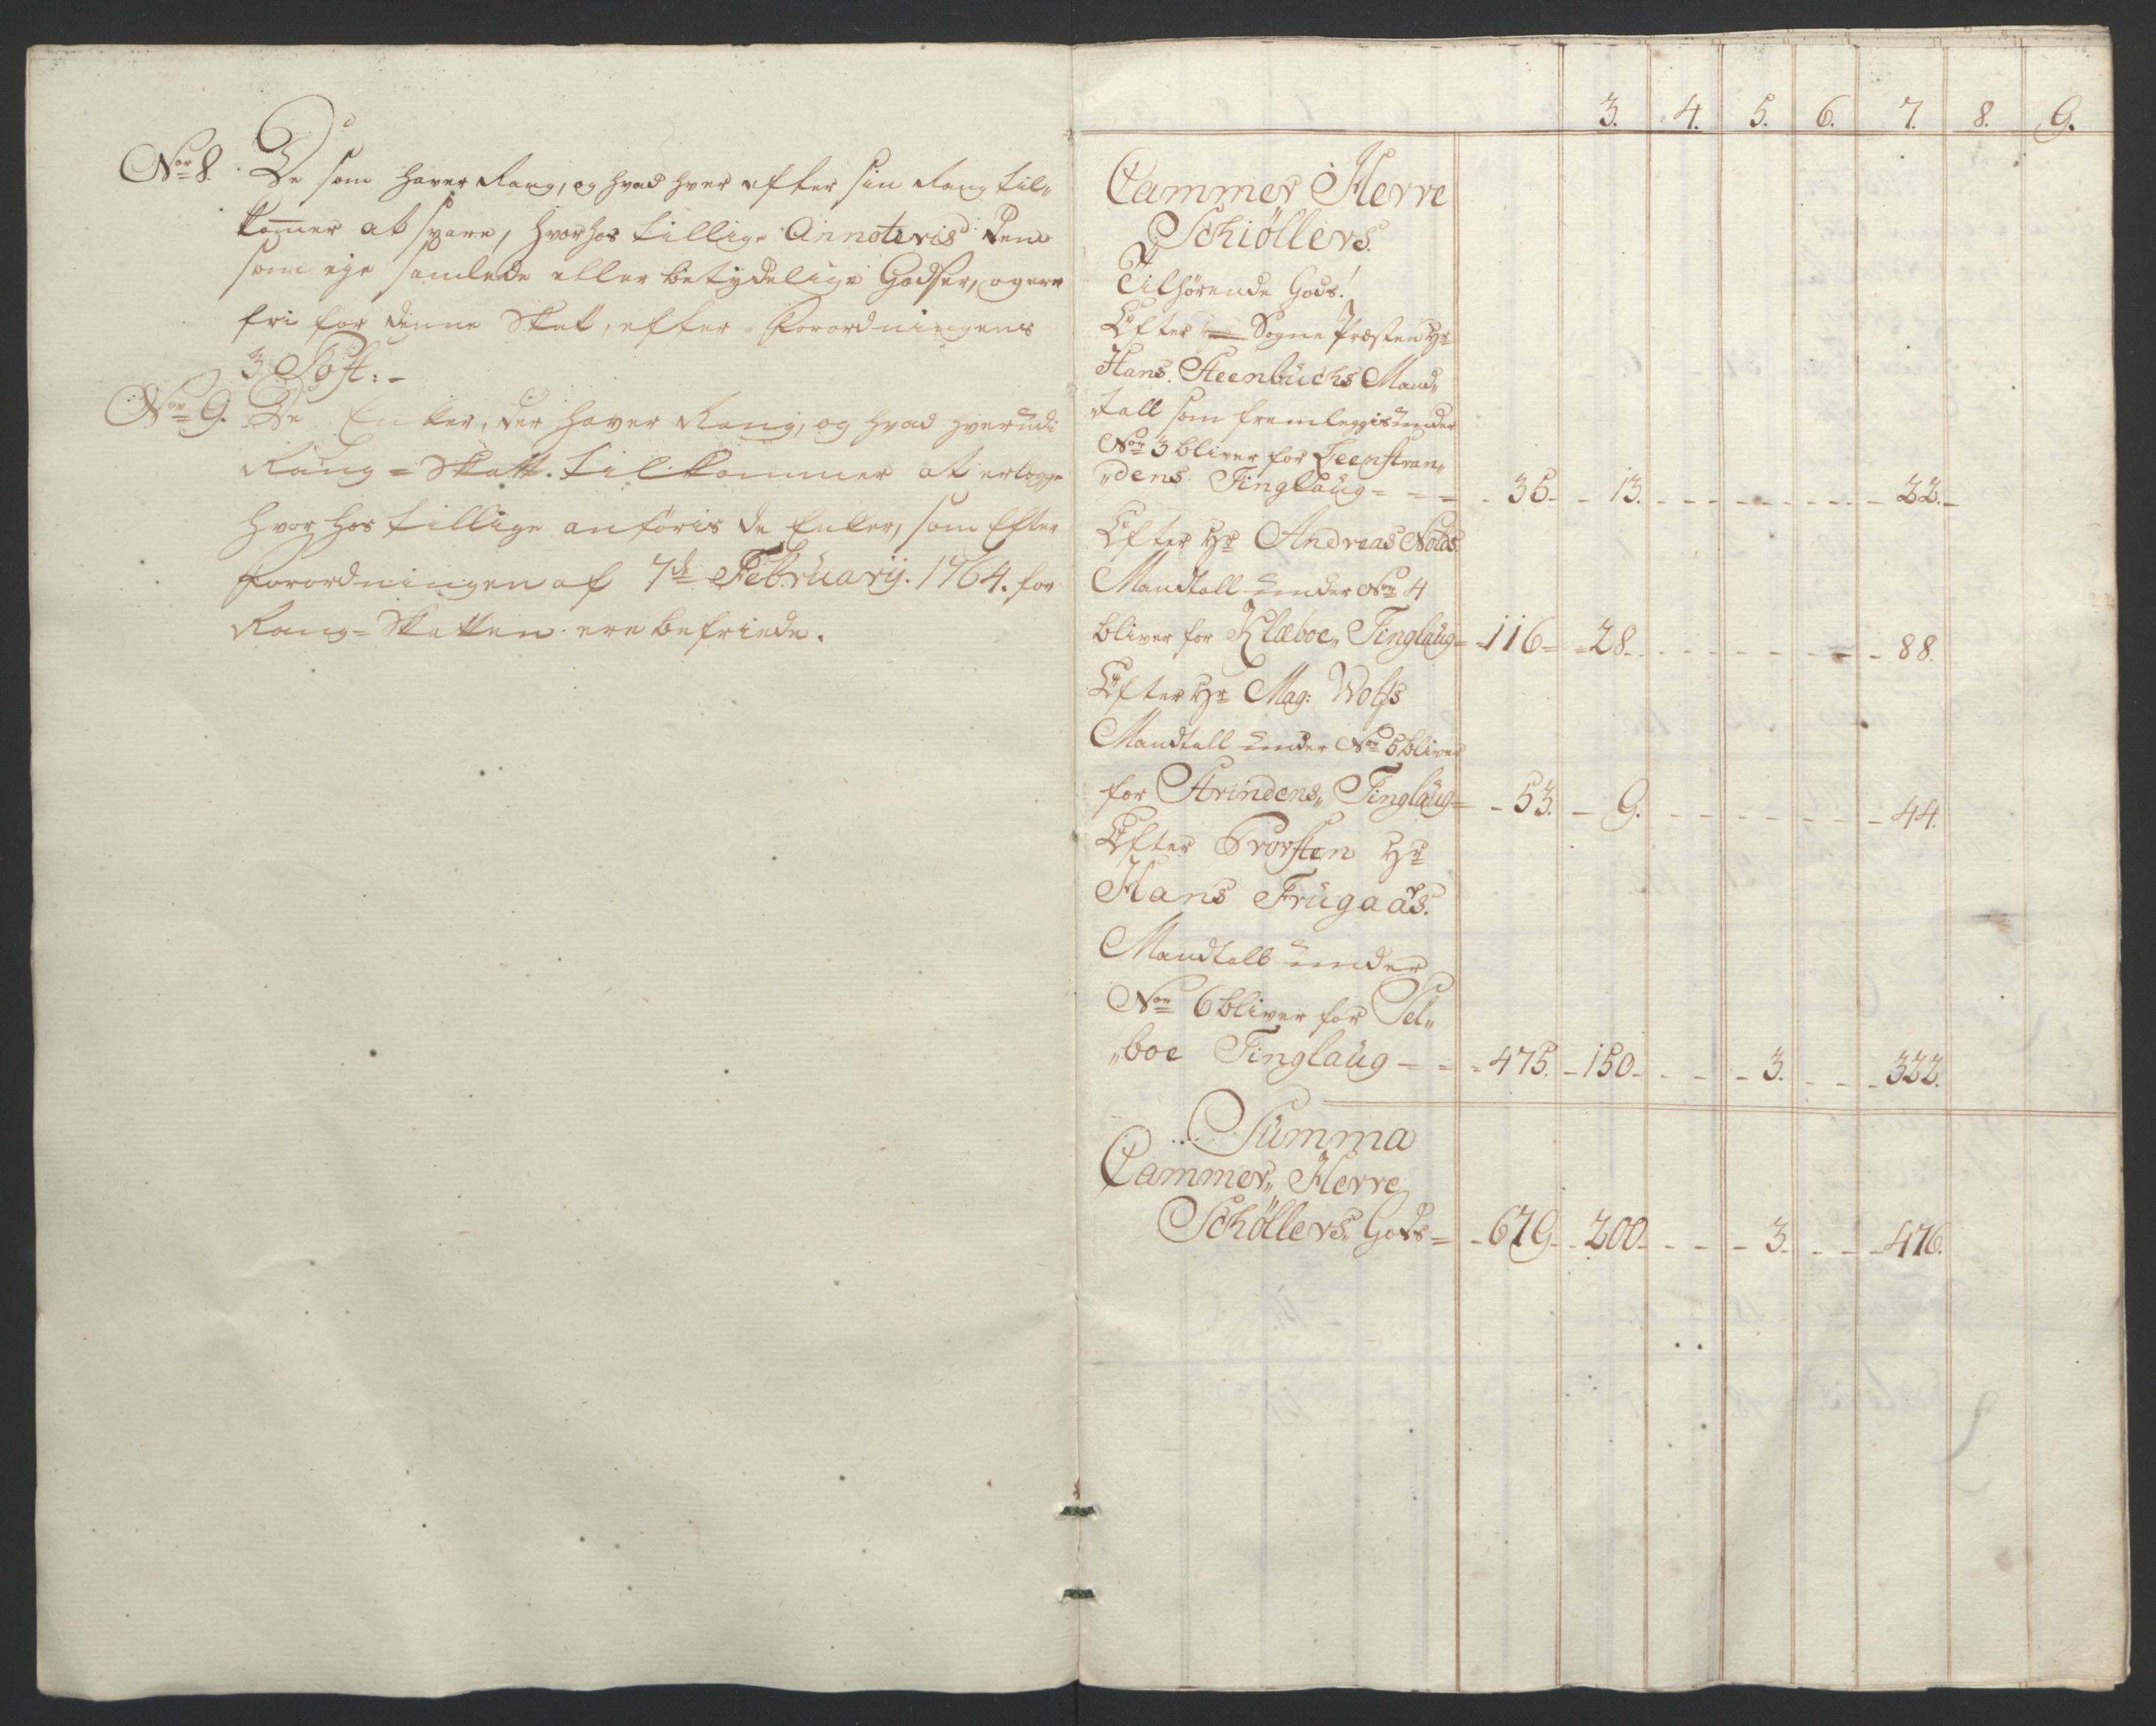 No 8. De som haver Rang, og hvad hver efter sin Rang til„
kom̄er at svare, hvorhos tillige Annoteris dem
som eje samlede eller betydelige Godser, og ere
fri for denne Skat, efter Forordningens
3 Post: -
No 9. De Enker, der haver Rang, og hvad hver udi
Rang = Skatt tilkommer at erlegge
hvorhos tillige anföris de Enker, som Efter
Forordningen af 7de Februarij. 1764. for
Rang = Skatten ere befriede.
3. 4. 5. 6. 7. 8. 9.
Cammer Herre
Schiöllers
Tilhørende Gods!
Efter Sogne Præsten Hr
Hans Steenbuchs Mand„
„tall som fremleggis under
No 3 bliver for Leenstran„
„dens Tinglaug = - = - 35. - 13. - - - 22. -
Efter Hr Andreas Nolds
Mandtall under No 4
bliver for Klæboe„ Tinglaug = - 116 = = 28. - - - 88.
Efter Hr Mag: Wolfs
Mandtall under No 5 bliver
for Strindens„ Tinglaug = - 53. - 9. - - - 44.
Efter Provsten Hr
Hans Frugaards
Mandtall under
No 6 bliver for Sel„
„boe Tinglaug - = = 475. - 150. - - - 3. - - - 322.
Summa
Cammer„ Herre
Schöllers„ Gods = - 679. - 200. - - - 3. - - - 476.